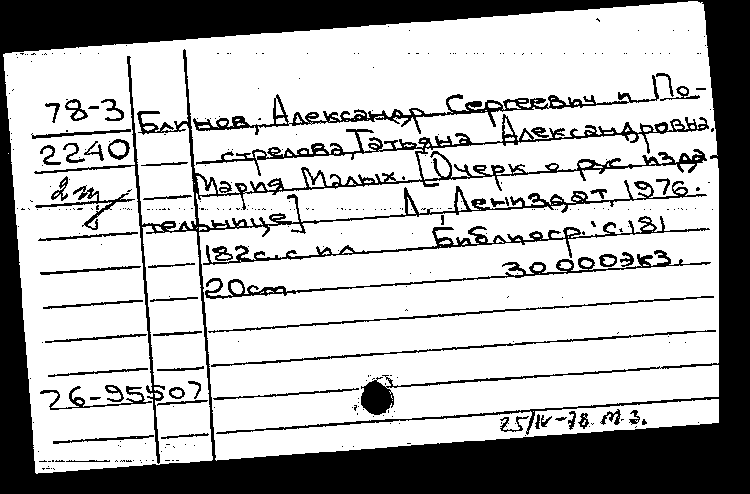 78-3 Блинов, Александр Сергеевич и По-
2240 стрелова, Татьяна Александровна.
2 Мария Малых. [Очерк о рус. изда-
тельнице] Л., Лениздат, 1976.
182 с. с ил Библиогр.: с. 181
20 cm. 30 000 экз.
76-95507
25/IV-78 м.з.